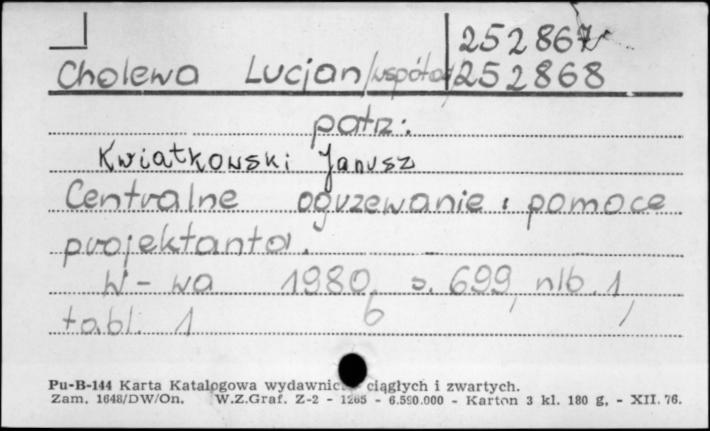 252867
Cholewa Lucjan /współa/ 252868
patrz:
Kwiatkowski Janusz
Centralne ogrzewanie : pomoce
projektanta.
W-wa 1980, s. 699, nlb. 1,
tabl. 1 b
Pu-B-144 Karta Katalogowa wydawnictw ciągłych i zwartych.
Zam. 1648/DW/On. W.Z.Graf. Z-2 - 1265 - 6.590.000 - Karton 3 kl. 180 g. - XII. 76.